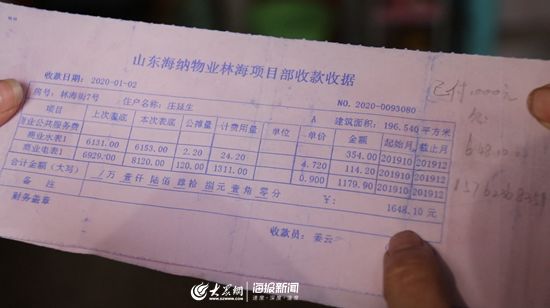 山东海纳物业林海项目部收款收据
收款日期：2020-01-02 NO. 2020-0093080
房号：林海街7号 住户名称：庄延生 A 建筑面积：196.540 平方米
项目 上次表底 本次表底 公摊量 计费用量 单位 单价 金额 起始月 截止月
商业公共服务费 354.00 201910 201912
商业水表1 6131.00 6153.00 2.20 24.20 4.720 114.20 201910 201912
商业电表1 6929.00 8120.00 120.00 1311.00 0.900 1179.90 201910 201912
合计金额（大写） /万 壹仟 陆佰 肆拾 捌元 壹角 零分 ¥： 1648.10 元
备注
财务盖章 收款员：姜云
已付1000元
欠
648.10
大众网 海报新闻
速度·深度·温度